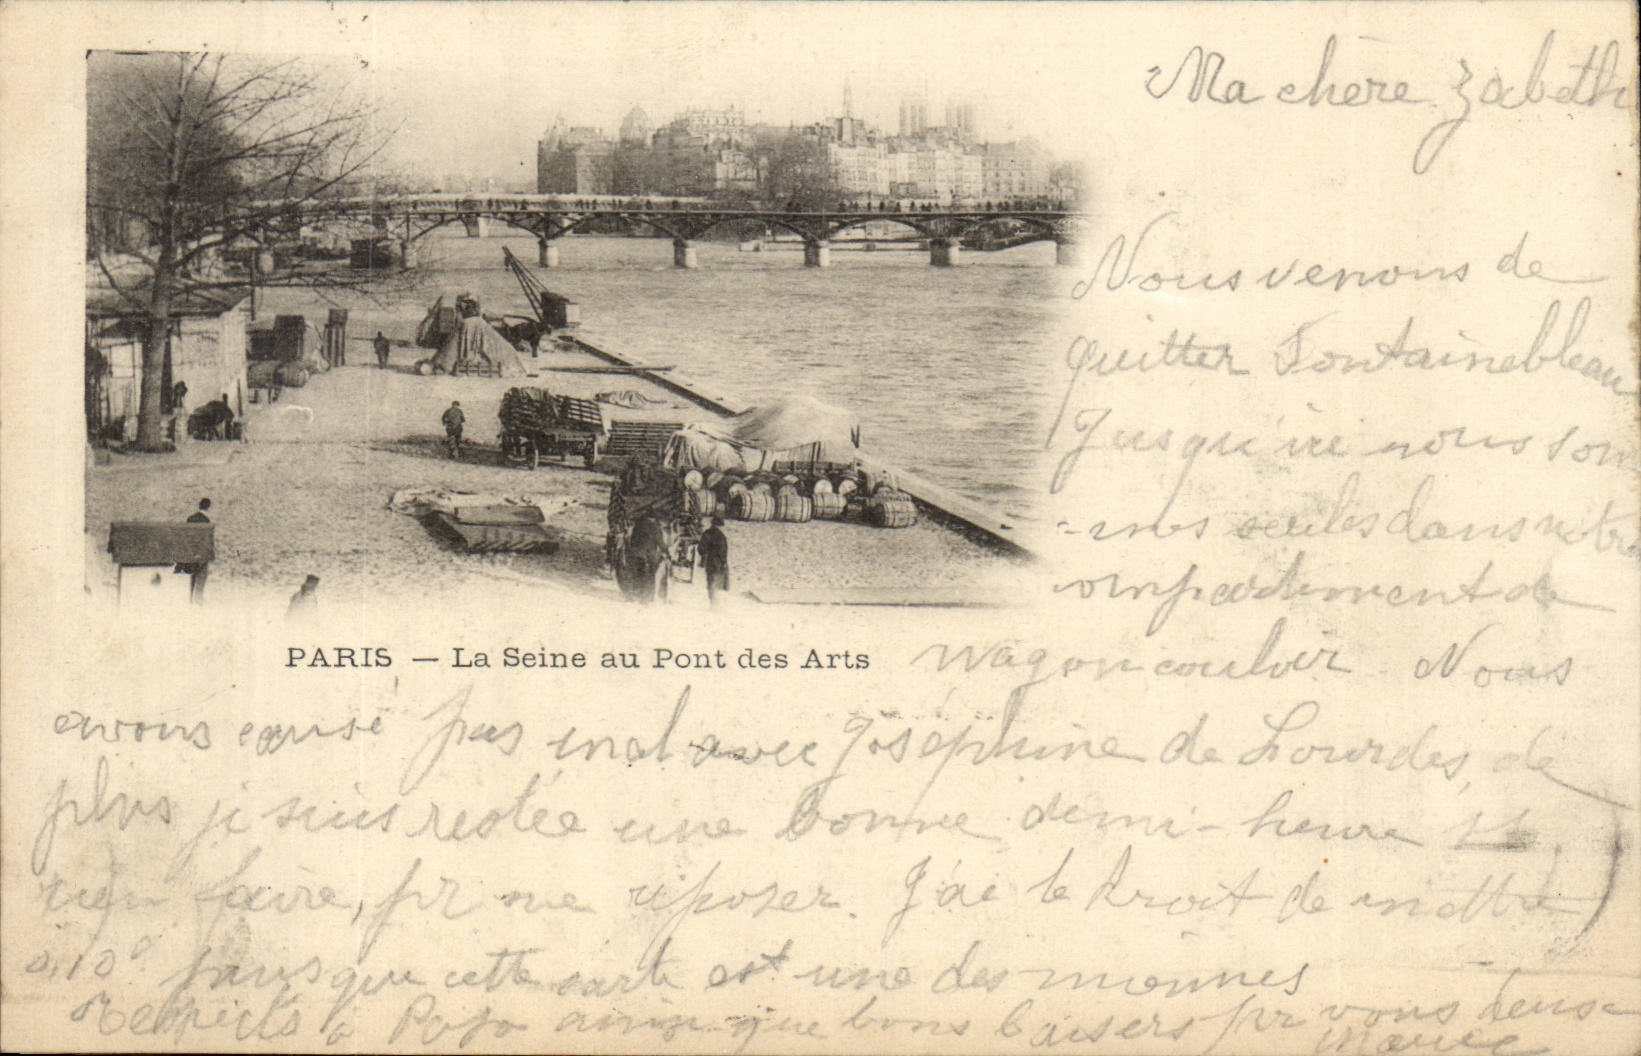 Ma chère Zabeth
Nous venons de
quitter Fontainebleau
Jusqu'ici nous som
-mes seules dans notre
compartiment de
PARIS — La Seine au Pont des Arts
wagon couloir. Nous
avons causé pas mal avec Joséphine de Lourdes, de
plus je suis restée une bonne demi-heure ss
rien faire, pr me reposer. J'ai le droit de mettre
0,10c puisque cette carte est une des miennes
Respects à Papa ainsi que bons baisers pr vous deux